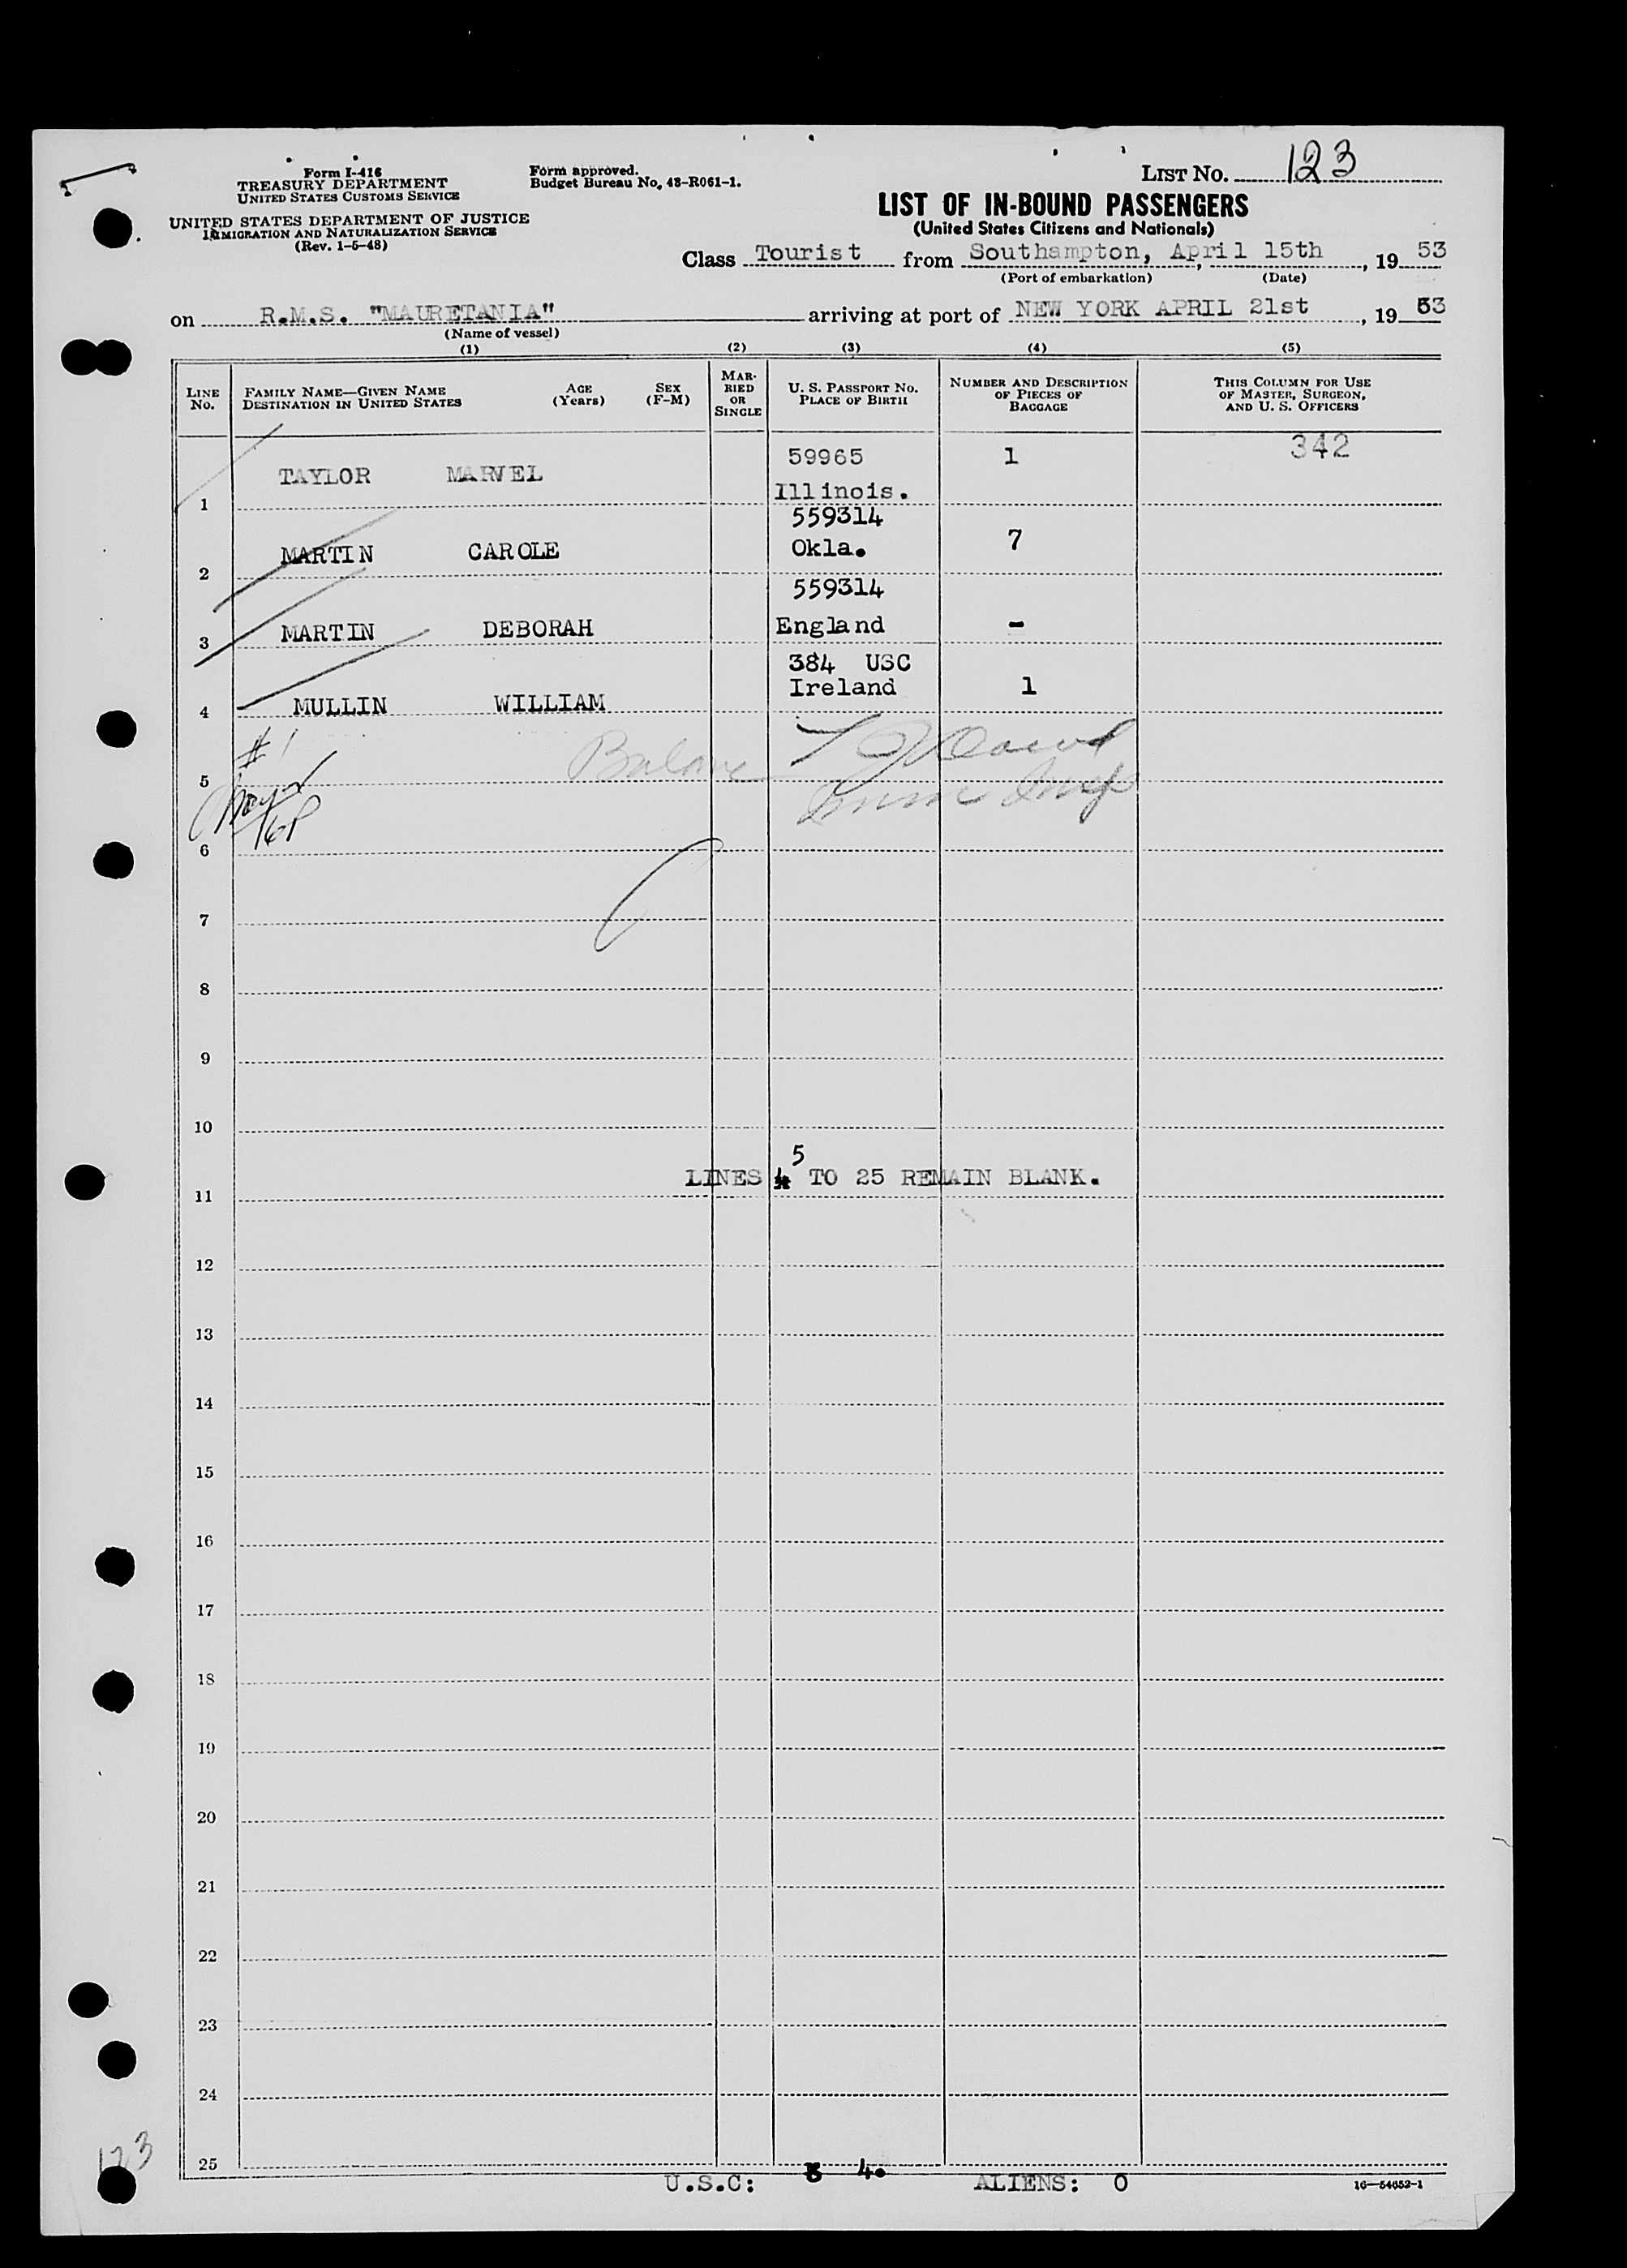 Form I-416
TREASURY DEPARTMENT
UNITED STATES CUSTOMS SERVICE
UNITED STATES DEPARTMENT OF JUSTICE
IMMIGRATION AND NATURALIZATION SERVICE
(Rev. 1-5-48)
Form approved.
Budget Bureau No. 43-R061-1.
LIST No. 123
LIST OF IN-BOUND PASSENGERS
(United States Citizens and Nationals)
Class Tourist from Southampton, April 15th, 19 53
(Port of embarkation) (Date)
on R.M.S. "MAURETANIA" arriving at port of NEW YORK APRIL 21st, 19 53
(Name of vessel)
(1) (2) (3) (4) (5)
LINE No. FAMILY NAME—GIVEN NAME DESTINATION IN UNITED STATES AGE (Years) SEX (F-M) MARRIED OR SINGLE U. S. PASSPORT No. PLACE OF BIRTH NUMBER AND DESCRIPTION OF PIECES OF BAGGAGE THIS COLUMN FOR USE OF MASTER, SURGEON, AND U. S. OFFICERS
342
59965 1
TAYLOR MARVEL
1 Illinois.
559314
MARTIN CAROLE Okla. 7
2
559314
3 MARTIN DEBORAH England -
384 USC
Ireland 1
4 MULLIN WILLIAM
# 1
5
6
7
8
9
10
5
LINES 4 TO 25 REMAIN BLANK.
11
12
13
14
15
16
17
18
19
20
21
22
23
24
123
25
U.S.C: 3 4. ALIENS: 0
16—54652-1